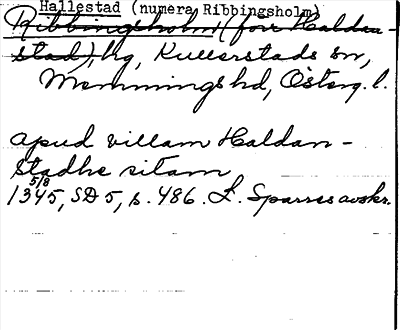 Hallestad (numera Ribbingsholm)
Ribbingsholm (förr Haldan-
stad), hg, Kullerstads sn,
Memmings hd, Österg. l.
apud villam Haldan-
stadhe sitam
5/8
1345, SD 5, s. 486. L. Sparres avskr.